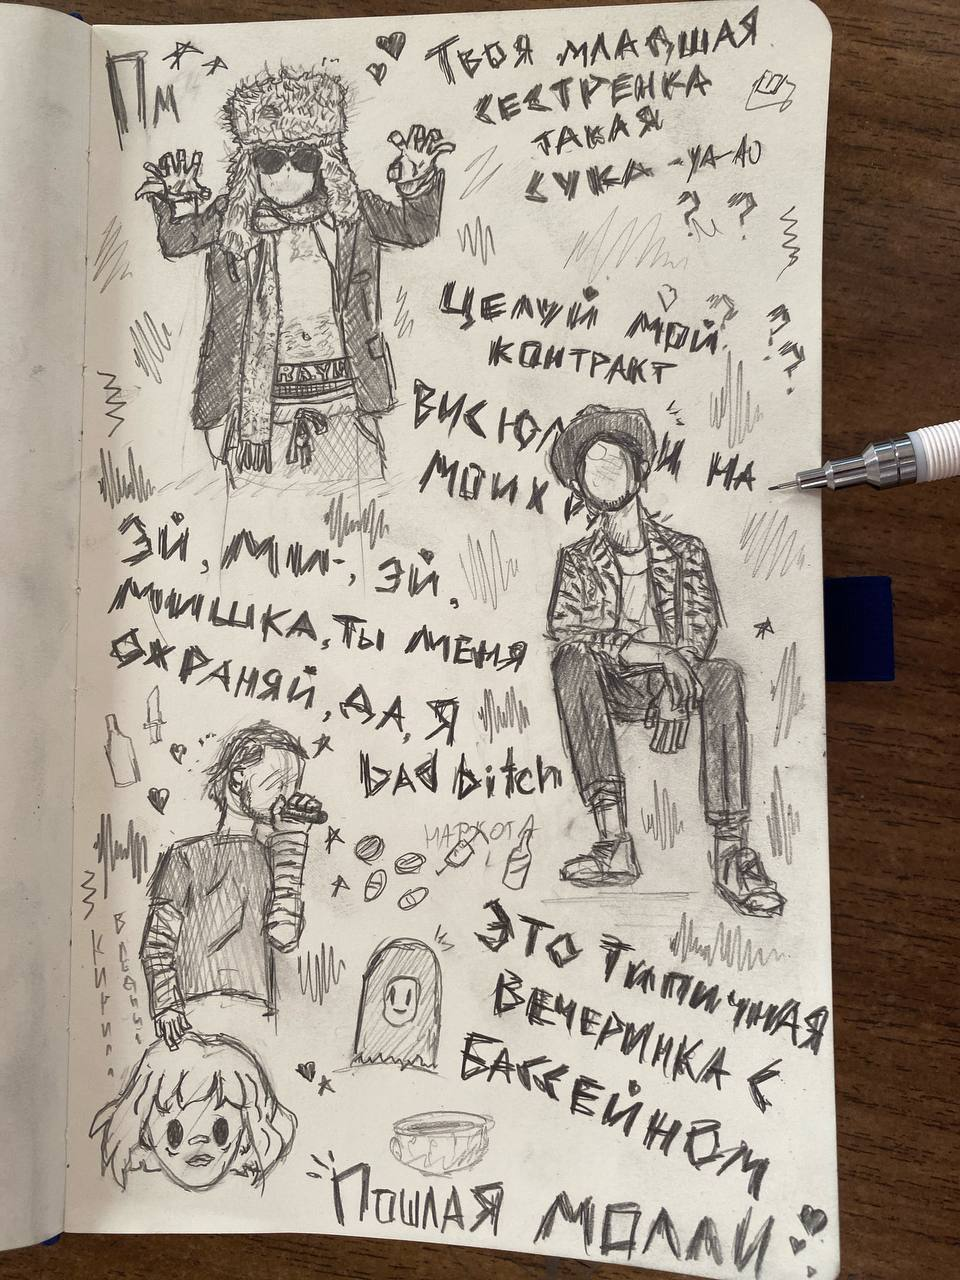 Пм
ТВОЯ МЛАДШАЯ
СЕСТРЕНКА
ТАКАЯ
СУКА -УА-АО
? ?
ЦЕЛУЙ МОЙ
КОНТРАКТ
? ? ?
ВИСЮЛ И НА
МОИХ
ЭЙ, МИ-, ЭЙ,
МИШКА, ТЫ МЕНЯ
ОХРАНЯЙ, ДА, Я
bad bitch
НАРКОТА
КИРИЛЛ
БЛЕДНЫЙ
ЭТО ТИПИЧНАЯ
ВЕЧЕРИНКА С
БАССЕЙНОМ
ПОШЛАЯ МОЛЛИ